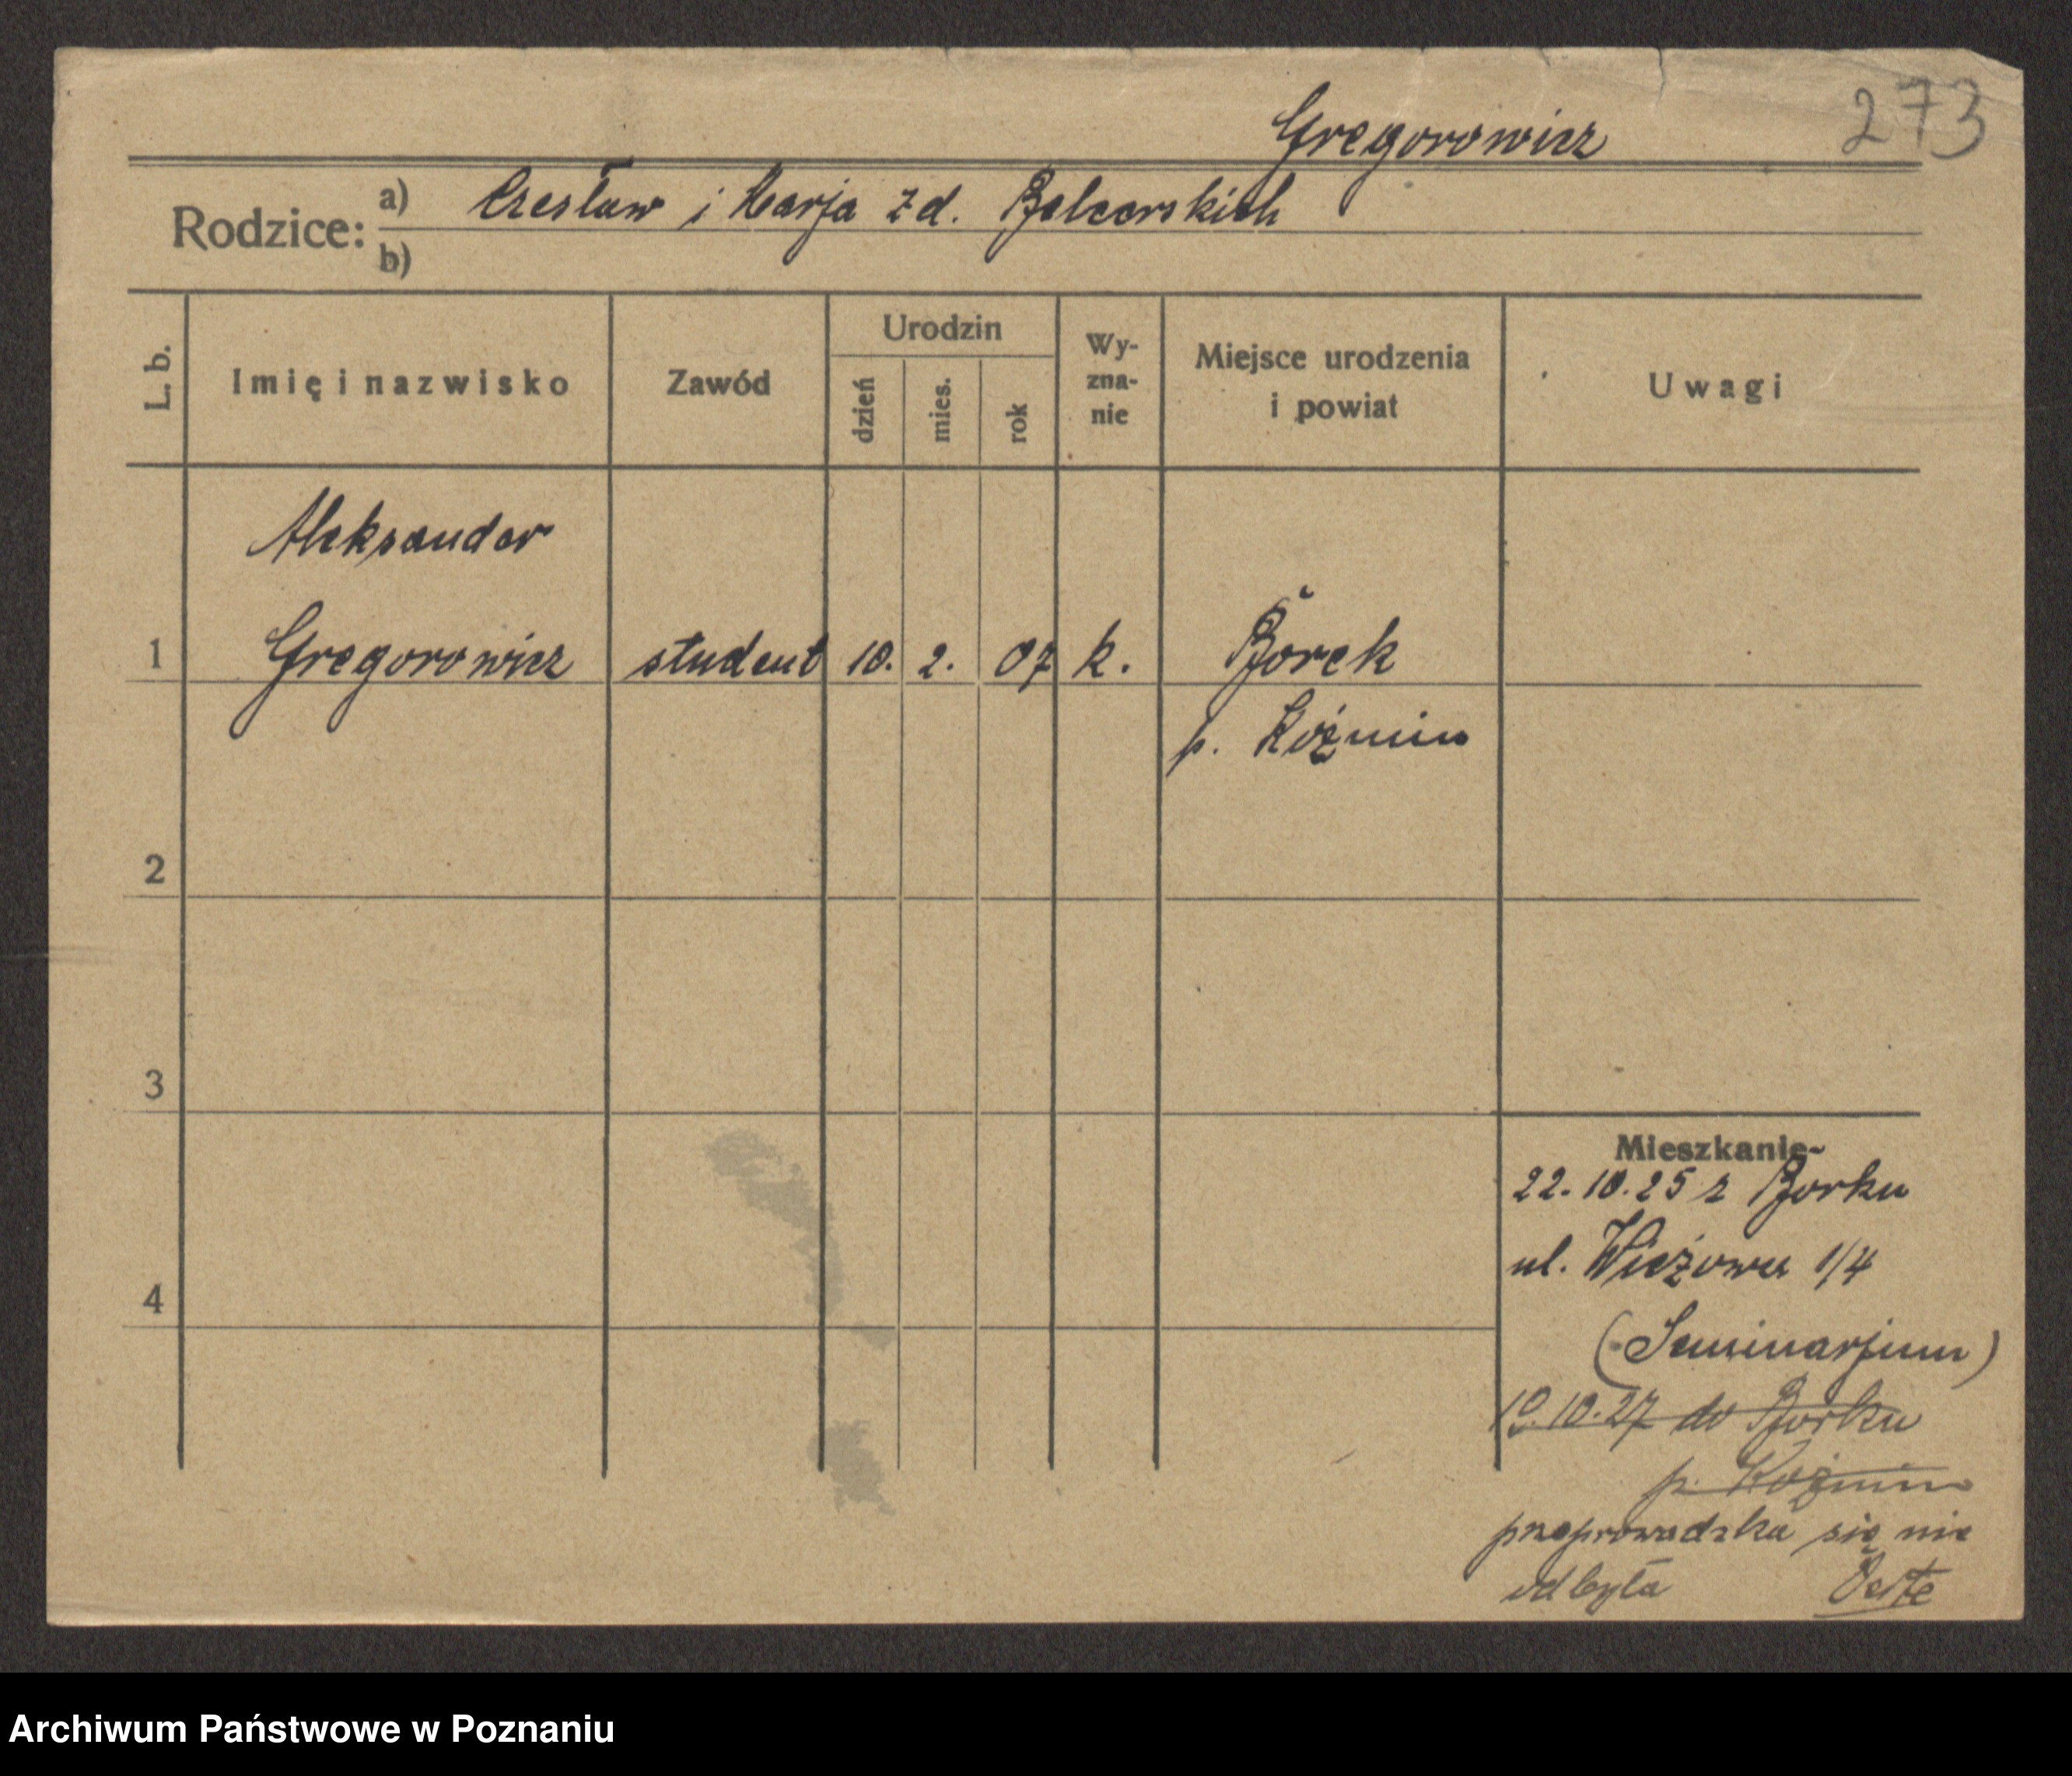 273
Gregorowicz
Rodzice: a) Czesław i Marja z d. Balcerskich
b)
L. b. Imię i nazwisko Zawód Urodzin dzień mies. rok Wy-zna-nie Miejsce urodzenia i powiat Uwagi
Aleksander
1 Gregorowicz student 10. 2. 07 k. Borek
p. Koźmin
2
3
4
Mieszkanie
22.10.25 z Borku
ul. Wieżowa 1/4
(Seminarjum)
10.27 do Borku
p. Koźmin
przeprowadzka się nie
odbyła
Archiwum Państwowe w Poznaniu